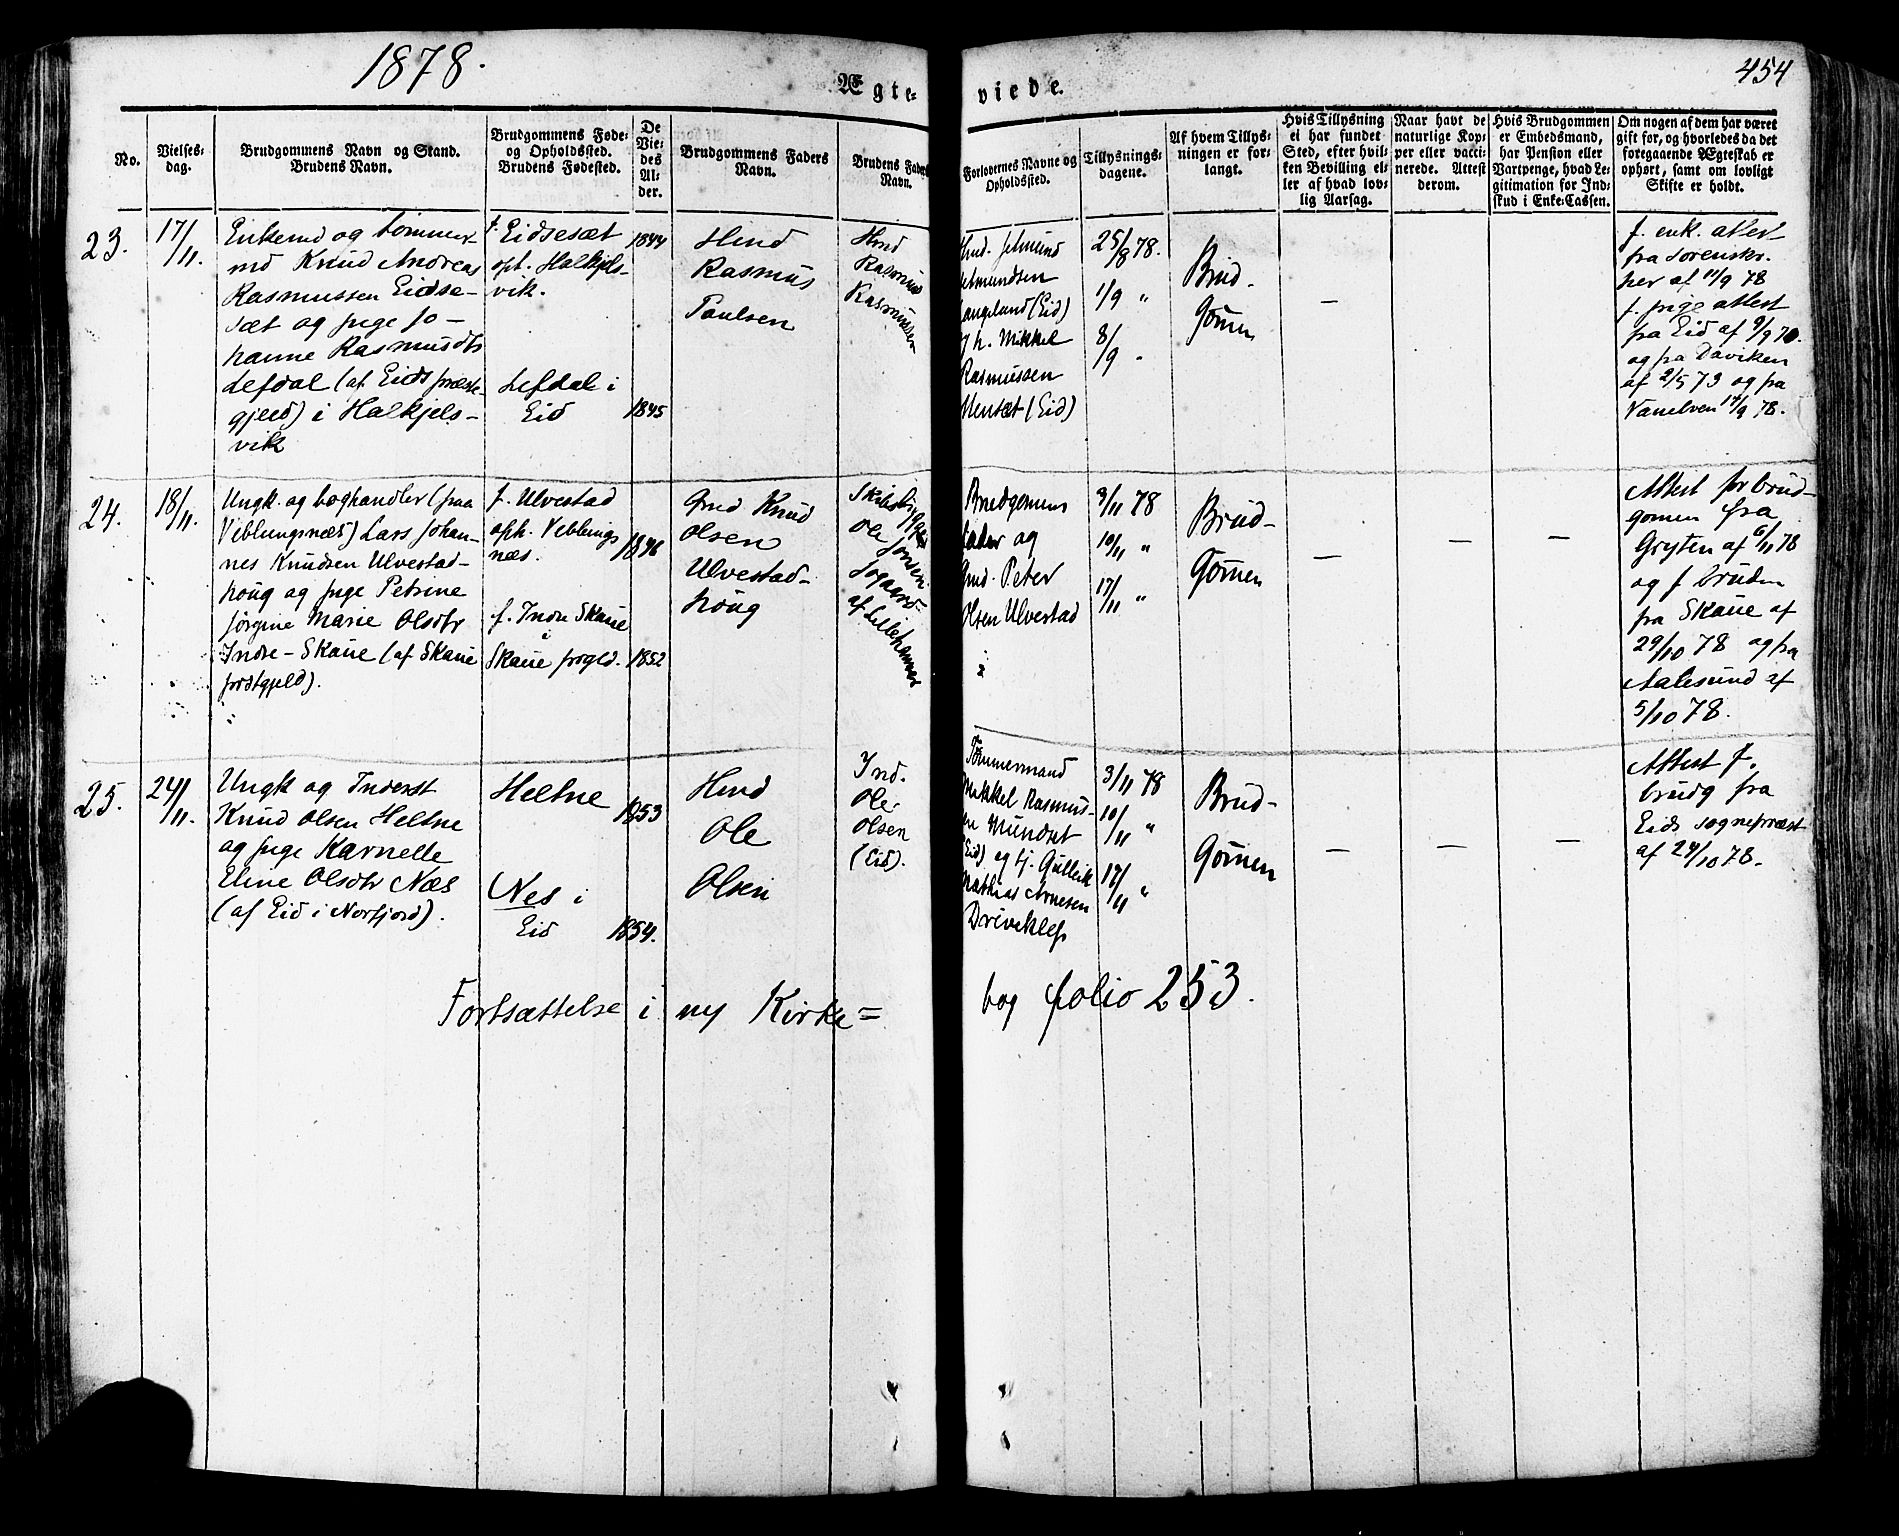 1878.
454
Ægte-
viede.
No.
Vielses-
dag.
Brudgommens Navn og Stand.
Brudens Navn.
Brudgommens Føde-
og Opholdssted.
Brudens Fødested.
De
Vie-
des
Al-
der.
Brudgommens Faders
Navn.
Brudens Faders
Navn.
Forlovernes Navne og
Opholdssted.
Tillysnings-
dagene.
Af hvem Tillys-
ningen er for-
langt.
Hvis Tillysning
ei har fundet
Sted, efter hvil-
ken Bevilling el-
ler af hvad lov-
lig Aarsag.
Naar havt de
naturlige Kop-
per eller vacci-
nerede. Attest
derom.
Hvis Brudgommen
er Embedsmand,
har Pension eller
Vartpenge, hvad Le-
gitimation for Ind-
skud i Enke-Cassen.
Om nogen af dem har været
gift før, og hvorledes da det
foregaaende Ægteskab er
ophørt, samt om lovligt
Skifte er holdt.
23.
17/11.
Enkemd og tømmer-
md Knud Andreas
Rasmussen Eidse-
sæt og pige Jo-
hanne Rasmusdtr
Lefdal (af Eids præste-
gjeld) i Halkjels-
vik
f. Eidsesæt
oph. Halkjels-
vik.
Lefdal i
Eid
1844
1845
Hmd
Rasmus
Paulsen
Hmd
Rasmus
Rasmussen
Hmd. Jetmund
Jetmundsen
Langeland (Eid)
og h. Mikkel
Rasmussen
(Eid)
25/8 78.
1/9 "
8/9 "
Brud-
Gomen
—
f. enk. attest
fra Sorenskr.
her af 11/9 78
f. pige attest
fra Eid af 9/9 78.
og fra Daviken
af 2/5 73 og fra
Vanelven 14/9 78.
24.
18/11.
Ungk. og boghandler (paa
Veblungsnæs) Lars Johan-
nes Knudsen Ulvestad-
houg og pige Petrine
Jørgine Marie Olsdtr
Indre-Skaue (af Skaue
prstgjeld).
f. Ulvestad
oph. Veblungs
næs.
f. Indre Skaue
i
Skaue prgld.
1846
1852
Gmd Knud
Olsen
Ulvestad-
houg
Skibsbygger
Ole Jonsen
af Lillehammer
Brudgomens
fader og
Gmd. Peter
Olsen Ulvestad
3/11 78
10/11 "
17/11 "
Brud-
Gomen
—
—
—
Attest for brud-
gomen fra
Gryten af 6/11 78
og f bruden
fra Skaue af
29/10 78 og fra
Aalesund af
5/10 78.
25.
24/11.
Ungk og Inderst
Knud Olsen Heltne
og pige Karnelle
Eline Olsdtr Næs
(af Eid i Norfjord).
Heltne
Nes i
Eid
1853
1854.
Hmd
Ole
Olsen
Ind.
Ole
Olsen
(Eid).
Tømmermand
Mikkel Rasmus-
en Mundset
(Eid) og tj. Gullik
Mathias Arnesen
3/11 78
10/11 "
17/11 "
Brud-
Gomen
—
—
—
Attest f.
brudg fra
Eids sognepræst
af 24/10 78.
Fortsættelse i ny Kirke=
bog folio 253.